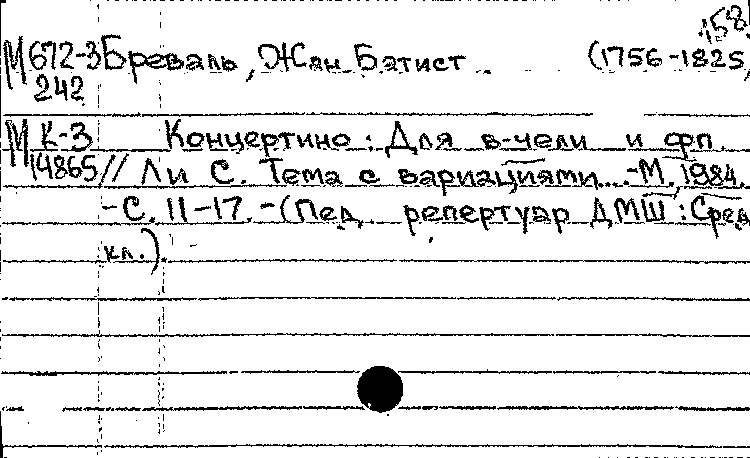 158
М672-3 Бреваль, Жан Батист (1756-1825
242
М К-3 Концертино : Для в-чели и фп.
14865 // Ли С. Тема с вариациями... -М., 1984.
-С. 11-17. -(Пед. репертуар ДМШ : Сред.
кл.).